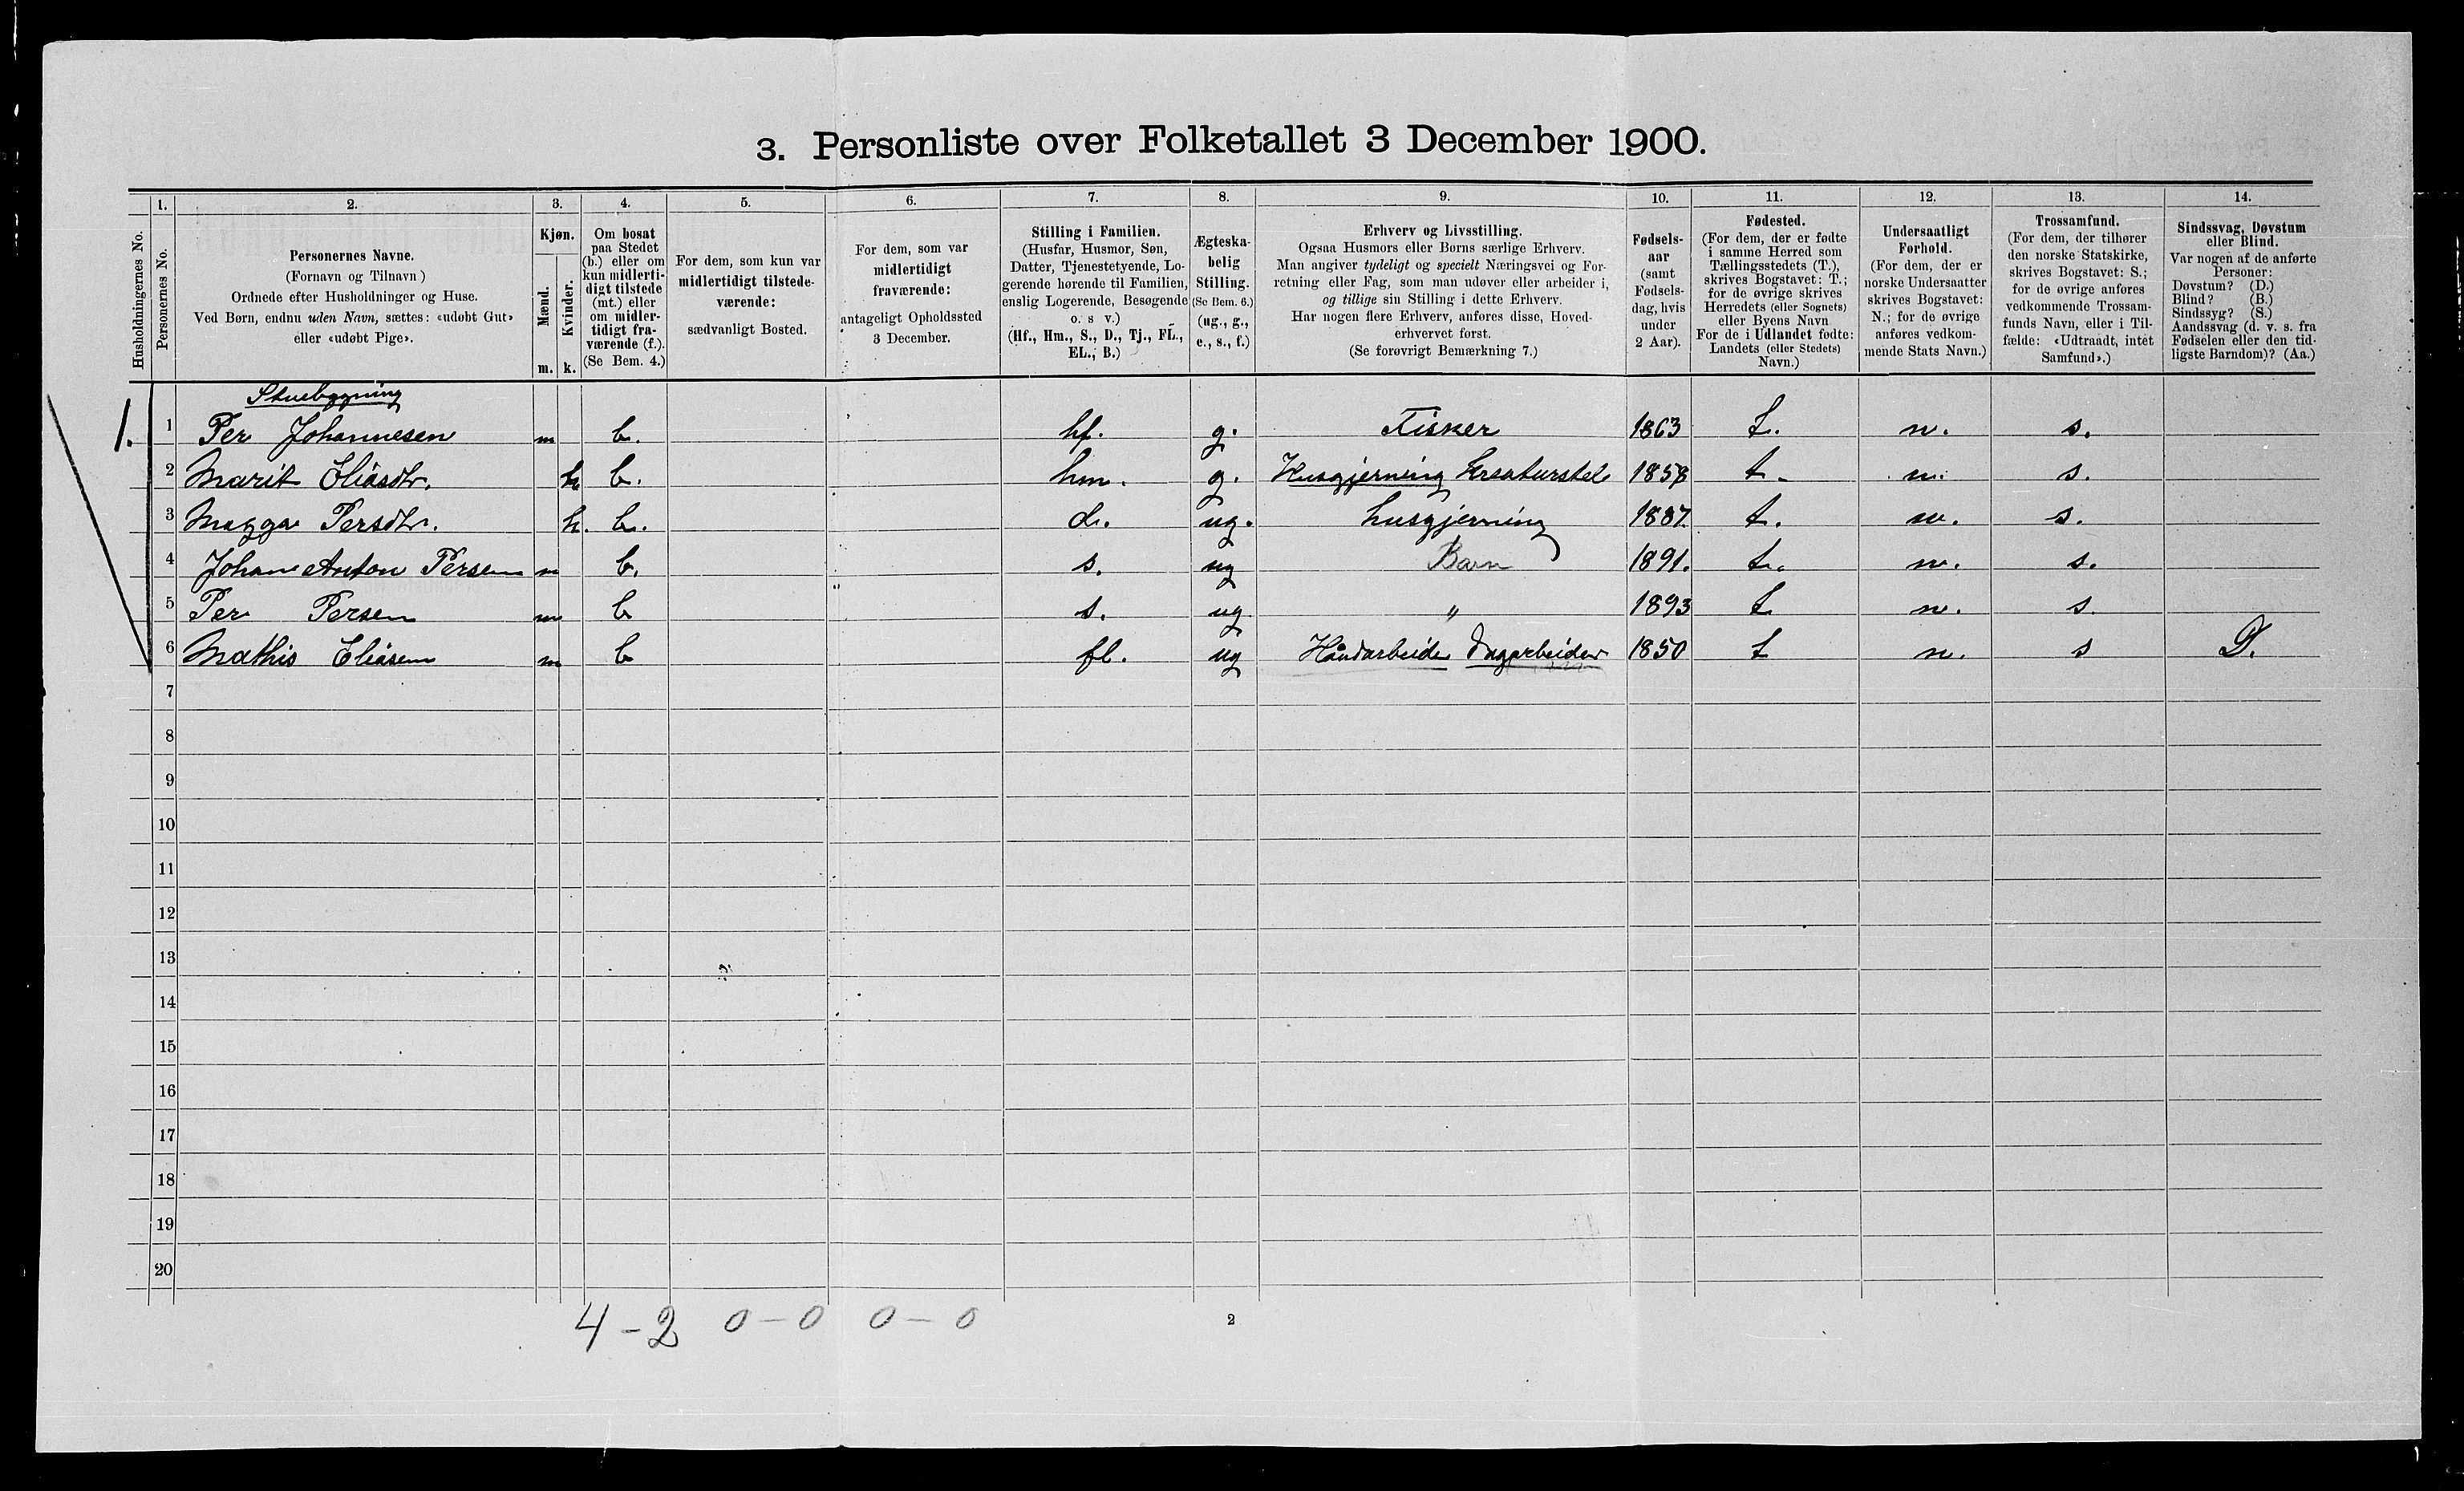 3. Personliste over Folketallet 3 December 1900.
1. 2. 3. 4. 5. 6. 7. 8. 9. 10. 11. 12. 13. 14.
Husholdningernes No.
Personernes No.
Personernes Navne.
(Fornavn og Tilnavn)
Ordnede efter Husholdninger og Huse.
Ved Børn, endnu uden Navn, sættes: «udøbt Gut»
eller «udøbt Pige».
Kjøn.
Mænd.
Kvinder.
m. k.
Om bosat
paa Stedet
(b.) eller om
kun midlerti-
digt tilstede
(mt.) eller
om midler-
tidigt fra-
værende (f.).
(Se Bem. 4.)
For dem, som kun var
midlertidigt tilstede-
værende:
sædvanligt Bosted.
For dem, som var
midlertidigt
fraværende:
antageligt Opholdssted
3 December.
Stilling i Familien.
(Husfar, Husmor, Søn,
Datter, Tjenestetyende, Lo-
gerende hørende til Familien,
enslig Logerende, Besøgende
o. s v.)
(Hf., Hm., S., D., Tj., FL.,
EL., B.)
Ægteska-
belig
Stilling.
(Se Bem. 6.)
(ug., g.,
e., s., f.)
Erhverv og Livsstilling.
Ogsaa Husmors eller Børns særlige Erhverv.
Man angiver tydeligt og specielt Næringsvei og For-
retning eller Fag, som man udøver eller arbeider i,
og tillige sin Stilling i dette Erhverv.
Har nogen flere Erhverv, anføres disse, Hoved-
erhvervet først.
(Se forøvrigt Bemærkning 7.)
Fødsels-
aar
(samt
Fødsels-
dag, hvis
under
2 Aar).
Fødested.
(For dem, der er fødte
i samme Herred som
Tællingsstedets (T.),
skrives Bogstavet: T.;
for de øvrige skrives
Herredets (eller Sognets)
eller Byens Navn
For de i Udlandet fødte:
Landets (eller Stedets)
Navn.)
Undersaatligt
Forhold.
(For dem, der er
norske Undersaatter
skrives Bogstavet:
N.; for de øvrige
anføres vedkom-
mende Stats Navn.)
Trossamfund.
(For dem, der tilhører
den norske Statskirke,
skrives Bogstavet: S.;
for de øvrige anføres
vedkommende Trossam-
funds Navn, eller i Til-
fælde: «Udtraadt, intet
Samfund».)
Sindssvag, Døvstum
eller Blind.
Var nogen af de anførte
Personer:
Døvstum? (D.)
Blind? (B.)
Sindssyg? (S.)
Aandssvag (d. v. s. fra
Fødselen eller den tid-
ligste Barndom)? (Aa.)
Stuebygning
1. 1 Per Johannesen m b. hf. g. Fisker 1863 t. n. s.
2 Marit Eliasdtr. k b. hm. g. Husgjerning Kreaturstel 1858 t. n. s.
3 Magga Persdtr. k. b. d. ug. husgjerning 1887. t. n. s.
4 Johan Anton Persen m b. s. ug Barn 1891. t. n. s.
5 Per Persen m b s. ug " 1893 t n. s
6 Mathis Eliasen m b fl. ug Håndarbeide Dagarbeider 1850 t n. s D.
7
8
9
10
11
12
13
14
15
16
17
18
19
20
4-2 0-0 0-0
2